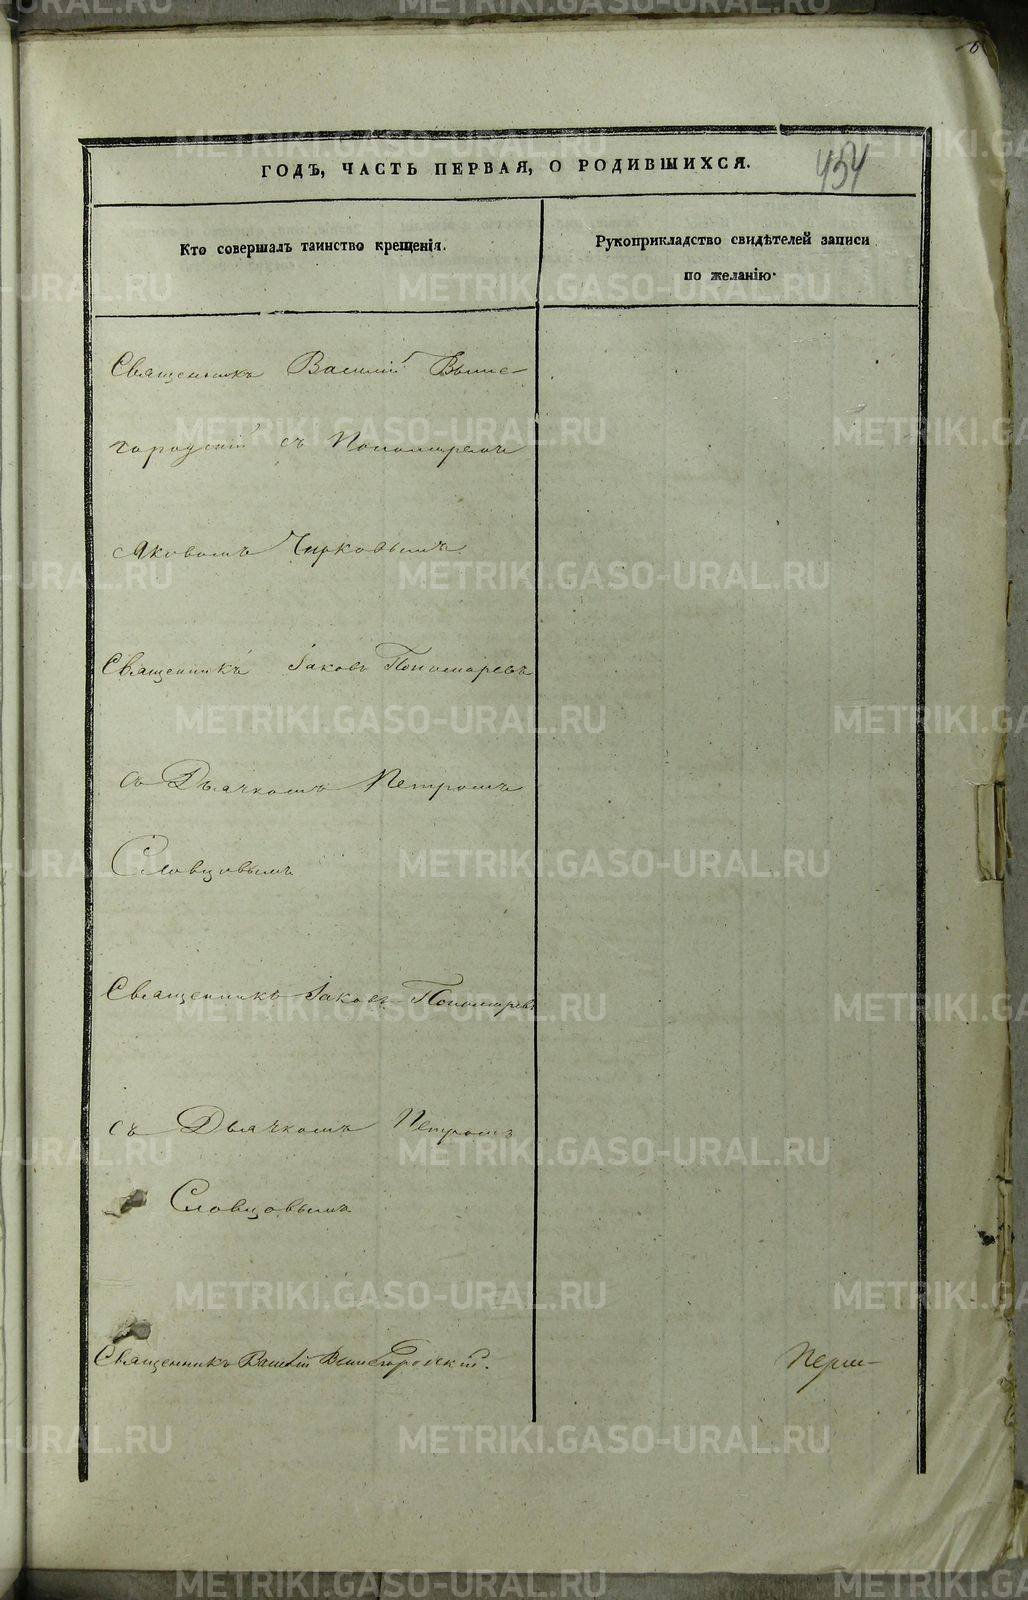 454
ГОДЪ, ЧАСТЬ ПЕРВАЯ, О РОДИВШИХСЯ.
Кто совершалъ таинство крещенія.
Рукоприкладство свидѣтелей записи
по желанію.
Священникъ Василій Выше-
городскій съ Пономаремъ
Яковомъ Чирковымъ
Священникъ Іаковъ Пономаревъ
съ Дьячкомъ Петромъ
Словцовымъ
Священникъ Іаковъ Пономаревъ
съ Дьячкомъ Петромъ
Словцовымъ
Священникъ Василій Вышегородскій.
METRIKI.GASO-URAL.RU